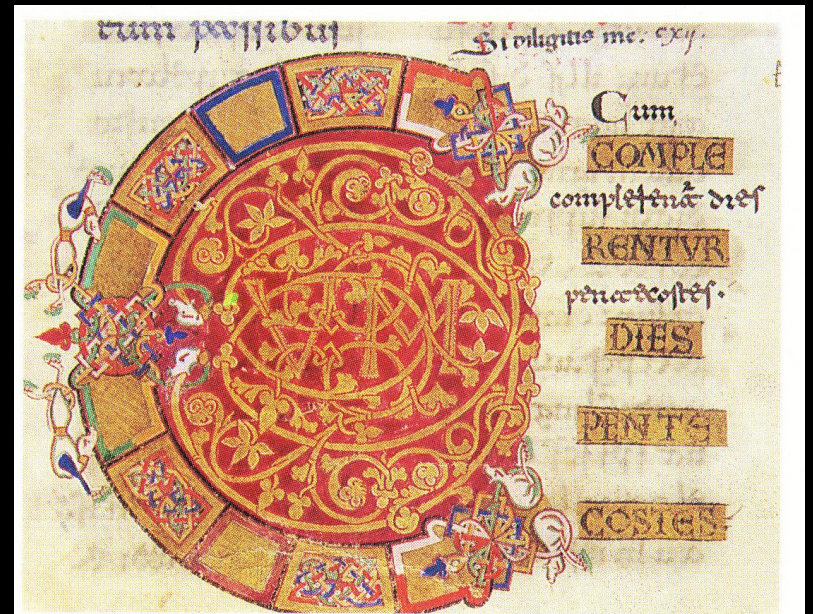 tum possibus
Si diligitis me. cxij.
Cum
COMPLE
complerent dies
RENTVR
pentecostes.
DIES
PENTE
COSTES
VM